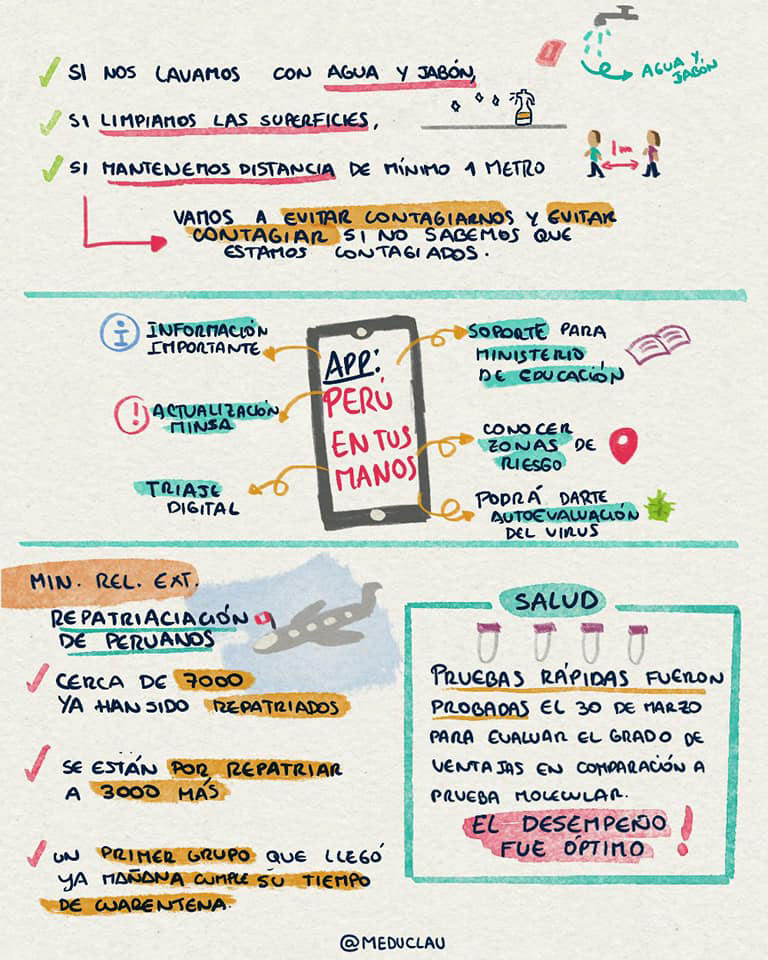 SI NOS LAVAMOS CON AGUA Y JABÓN,
AGUA Y
JABÓN
SI LIMPIAMOS LAS SUPERFICIES,
SI MANTENEMOS DISTANCIA DE MÍNIMO 1 METRO
1m
VAMOS A EVITAR CONTAGIARNOS Y EVITAR
CONTAGIAR SI NO SABEMOS QUE
ESTAMOS CONTAGIADOS.
INFORMACIÓN
IMPORTANTE
ACTUALIZACIÓN
MINSA
TRIAJE
DIGITAL
APP:
PERÚ
EN TUS
MANOS
SOPORTE PARA
MINISTERIO
DE EDUCACIÓN
CONOCER
ZONAS DE
RIESGO
PODRÁ DARTE
AUTOEVALUACIÓN
DEL VIRUS
MIN. REL. EXT.
REPATRIACIACIÓN
DE PERUANOS
CERCA DE 7000
YA HAN SIDO REPATRIADOS
SE ESTÁN POR REPATRIAR
A 3000 MÁS
UN PRIMER GRUPO QUE LLEGÓ
YA MAÑANA CUMPLE SU TIEMPO
DE CUARENTENA.
SALUD
PRUEBAS RÁPIDAS FUERON
PROBADAS EL 30 DE MARZO
PARA EVALUAR EL GRADO DE
VENTAJAS EN COMPARACIÓN A
PRUEBA MOLECULAR.
EL DESEMPEÑO
FUE ÓPTIMO !
@MEDUCLAU